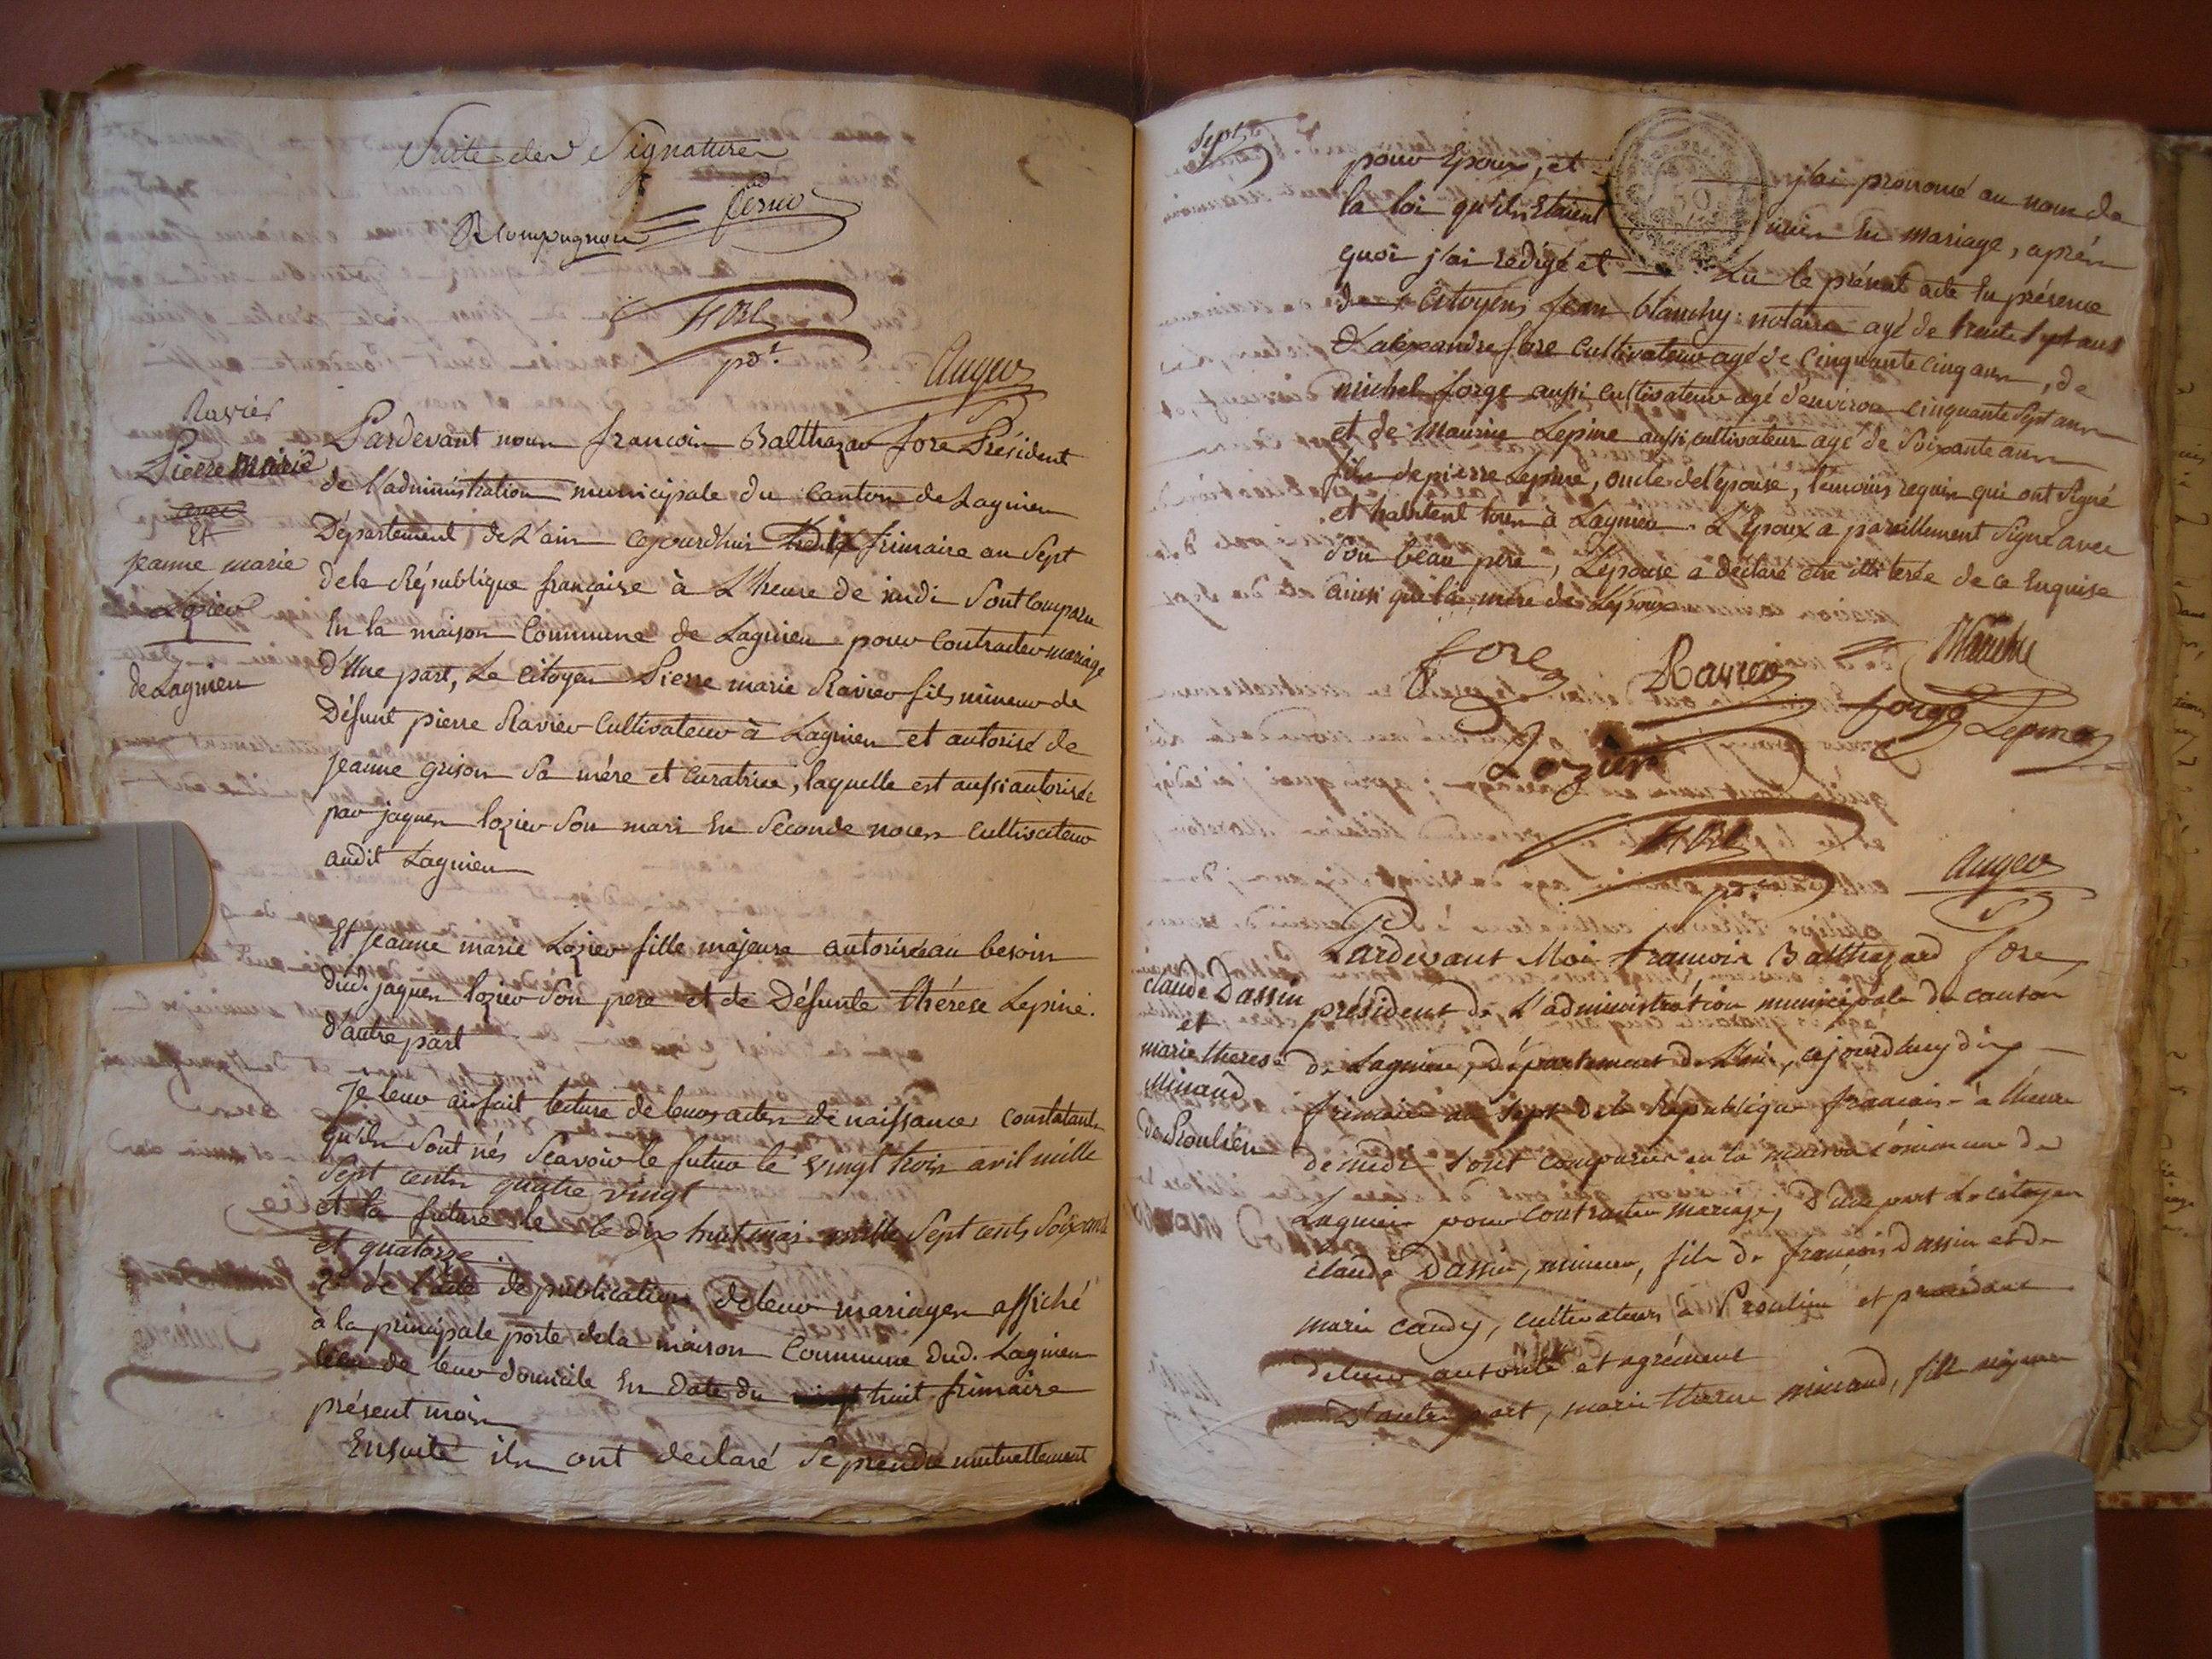 Suite des Signatures
Compagnon
fore
pdt.
Auger
Ravier
Pierre Marie
avec
Et
jeanne marie
Lozier
de Lagnieu
Pardevant nous francois Balthazar fore Président
de l'administration municipale du Canton de Lagnieu
Département de L'ain cejourdhui frimaire an Sept
de la République française à L'heure de midi Sont Comparu
En la maison Commune de Lagnieu pour Contracter mariage
d'Une part, Le Citoyen Pierre marie Ravier fils mineur de
Défunt pierre Ravier Cultivateur à Lagnieu et autorisé de
jeanne grison Sa mére et Curatrice, laquelle est aussi autorisée
par jaques lozier Son mari En Seconde noces Cultivateur
audit Lagnieu
Et jeanne marie Lozier fille majeure autorisée au besoin
dud. jaques lozier Son pere et de Défunte thérese Lepine.
d'autre part
Je leur ai fait lecture de leurs actes de naissance Constatants
qu'ils Sont nés Scavoir le futur le vingt trois avril mille
Sept cents quatre vingt
et la future le le dix huit mai mille Sept cents Soixante
et quatorze.
2° de l'acte de publication de leur mariages affiché
à la principale porte de la maison Commune dud. Lagnieu
lieu de leur domicile En date du huit frimaire
présent mois
Ensuite ils ont declaré Se prendre mutuellement
Sept
pour Epoux, et j'ai prononcé au nom de
la loi qu'ils Etaient unis En mariage, après
quoi j'ai redigé et Lu le présent acte En présence
des Citoyens Jean blanchy notaire agé de trente Sept ans
D'alexandre fore Cultivateur agé de Cinquante cinq ans, de
michel forge aussi Cultivateur agé d'environ cinquante Sept ans
et de Maurice Lepine aussi cultivateur agé de Soixante ans
fils de pierre Lepine, oncle de l'épouse, témoins requis qui ont Signé
et habitent tous à Lagnieu. L'Epoux a pareillement Signé avec
Son beau pere, L'epouse a déclaré etre illiterée de ce Enquise
ainsi que la mere de L'epoux
fore
Ravier
Blanchy
forge
Lepine
Lozier
fore
pdt.
Auger
Claude Dassin
et
marie therese
Minand
de Proulieu
Pardevant Moi francois Balthazard fore
président de L'administration municipale du canton
de Lagnieu, département de L'ain, cejourdhuy dix
frimaire an Sept de la République francaise à l'heure
de midi Sont comparus en la maison commune de
Lagnieu pour Contracter mariage, D'une part Le citoyen
claude Dassin, mineur, fils de françois Dassin et de
marie caudy, cultivateurs à Proulieu et procédant
de leur autorité et agrément
D'autre part, marie therese minand, fille majeure